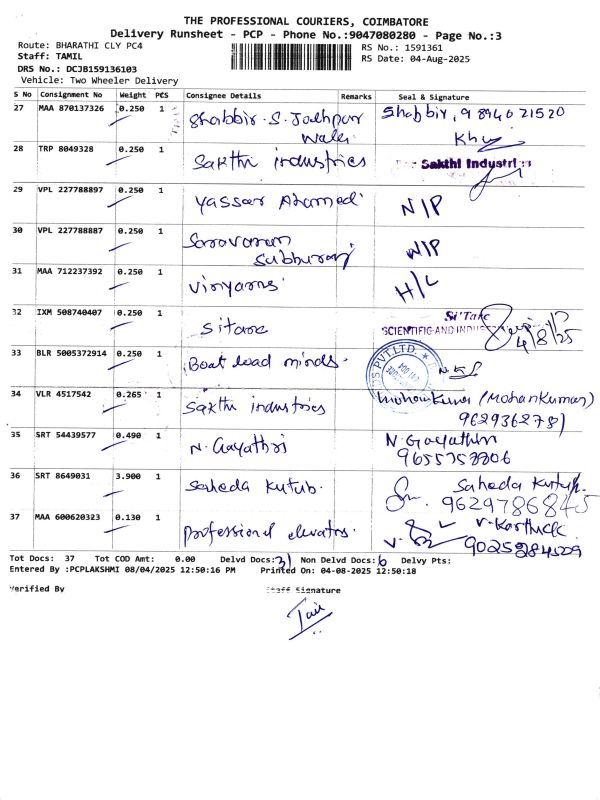 THE PROFESSIONAL COURIERS, COIMBATORE
Delivery Runsheet - PCP - Phone No.:9047080280 - Page No.:3
Route: BHARATHI CLY PC4 RS No.: 1591361
Staff: TAMIL RS Date: 04-Aug-2025
DRS No.: DCJB159136103
Vehicle: Two Wheeler Delivery
S No Consignment No Weight PCS Consignee Details Remarks Seal & Signature
27 MAA 870137326 0.250 1 Shabbir.S.Jodhpur Shabbir, 9894021520
Wala
28 TRP 8049328 0.250 1 Sakthi industries Sakthi Industries
29 VPL 227788897 0.250 1 Yasser Ahamed N/P
30 VPL 227788887 0.250 1 Saravanan N/P
Subburaj
31 MAA 712237392 0.250 1 H/L
32 IXM 508740407 0.250 1 Sitare Si'Tare
SCIENTIFIC AND 4/8/25
33 BLR 5005372914 0.250 1 Boat load minds. PVT.LTD.
34 VLR 4517542 0.265 1 Sakthi industries Mohan Kumar (MohanKumar)
9629362781
35 SRT 54439577 0.490 1 N.Gayathri N.Gayathri
9655758806
36 SRT 8649031 3.900 1 Saheda Kutub. Saheda Kutub.
9629786845
37 MAA 600620323 0.130 1 Professional elevators. V.Karthick
Tot Docs: 37 Tot COD Amt: 0.00 Delvd Docs: 31 Non Delvd Docs: 6 Delvy Pts:
Entered By :PCPLAKSHMI 08/04/2025 12:50:16 PM Printed On: 04-08-2025 12:50:18
Verified By Staff Signature